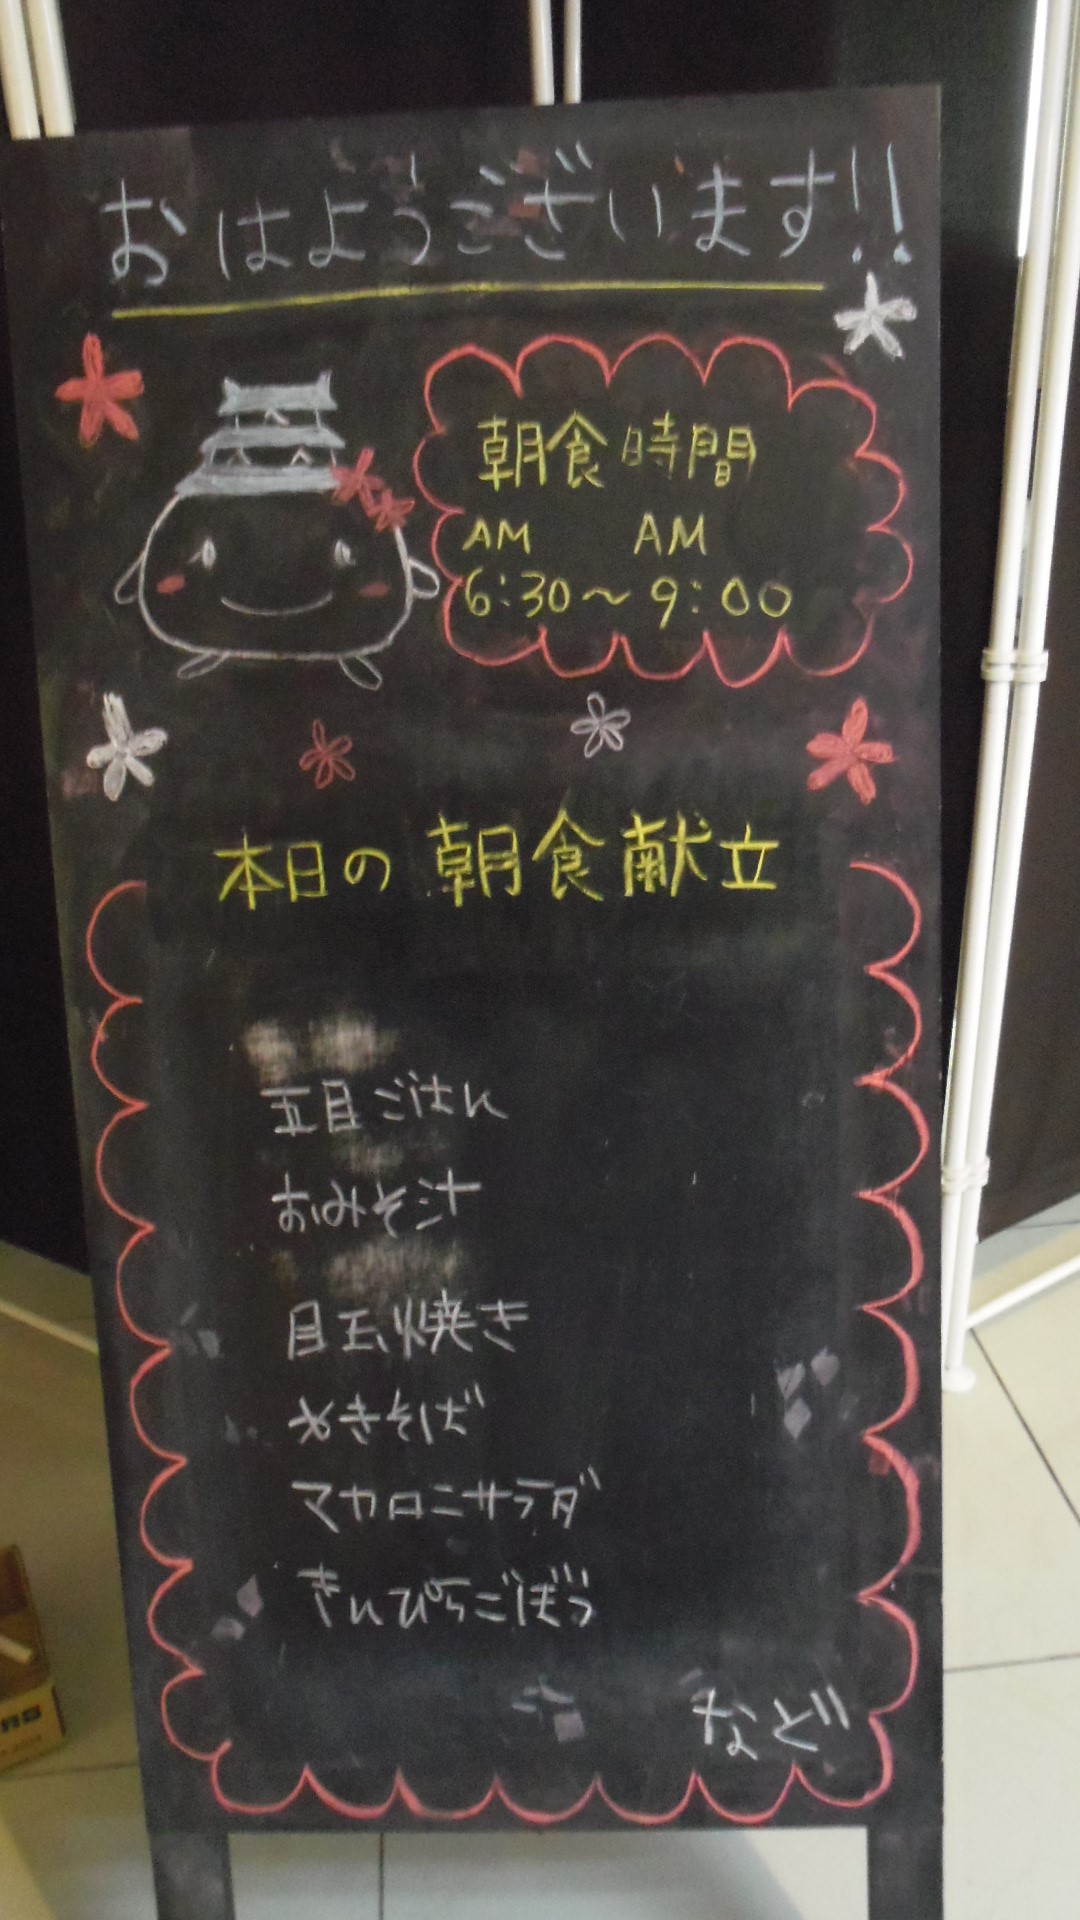 おはようございます!!
朝食時間
AM AM
6:30～9:00
本日の朝食献立
五目ごはん
おみそ汁
目玉焼き
やきそば
マカロニサラダ
きんぴらごぼう
など